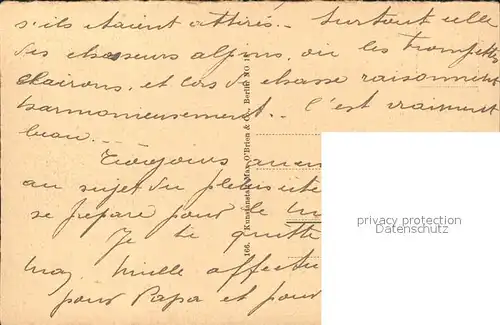 s'ils étaient attirés.. Surtout celle
des chasseurs alpins, où les trompettes
clairons, et cors de chasse raisonnent
harmonieusement.. C'est vraiment
beau.
Toujours aucun
au sujet du plébiscite
se prépare pour le
Je te quitte
mille affectu
pour Papa et pour
166. Kunstanstalt Max O'Brien & Co., Berlin NO 18
privacy protection
www.ansichtskartenversand.com